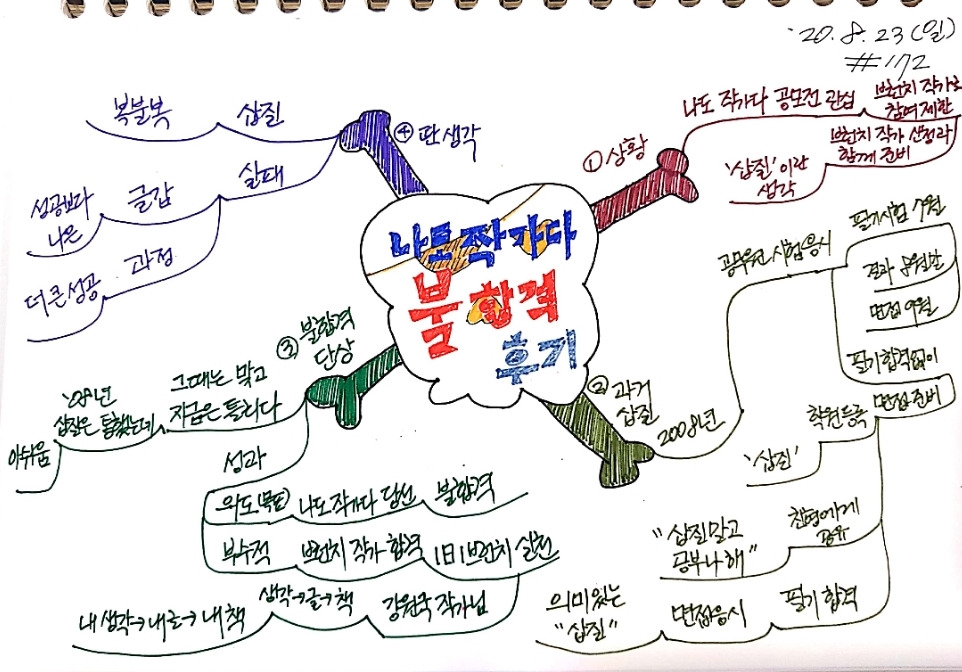 '20. 8. 23(일)
#172
나도 작가다
불합격
후기
① 상황
나도 작가다 공모전 관심
브런치 작가로
참여 제한
브런치 작가 신청과
함께 준비
'삽질'이란
생각
② 과거
삽질
2008년
공무원 시험응시
필기시험 7월
결과 8월말
면접 9월
필기 합격없이
면접 준비
학원등록
'삽질'
친형에게
공유
"삽질말고
공부나 해"
필기 합격
면접응시
의미있는
"삽질"
③ 불합격
단상
그때는 맞고
지금은 틀리다
'08년
삽질은 통했는데
아쉬움
성과
의도(목표)
나도 작가다 당선
불합격
부수적
브런치 작가 합격
1日1브런치 실천
강원국 작가님
생각→글→책
내 생각→내 글→내 책
④ 딴생각
삽질
복불복
실패
글감
성공보다
나은
과정
더 큰 성공